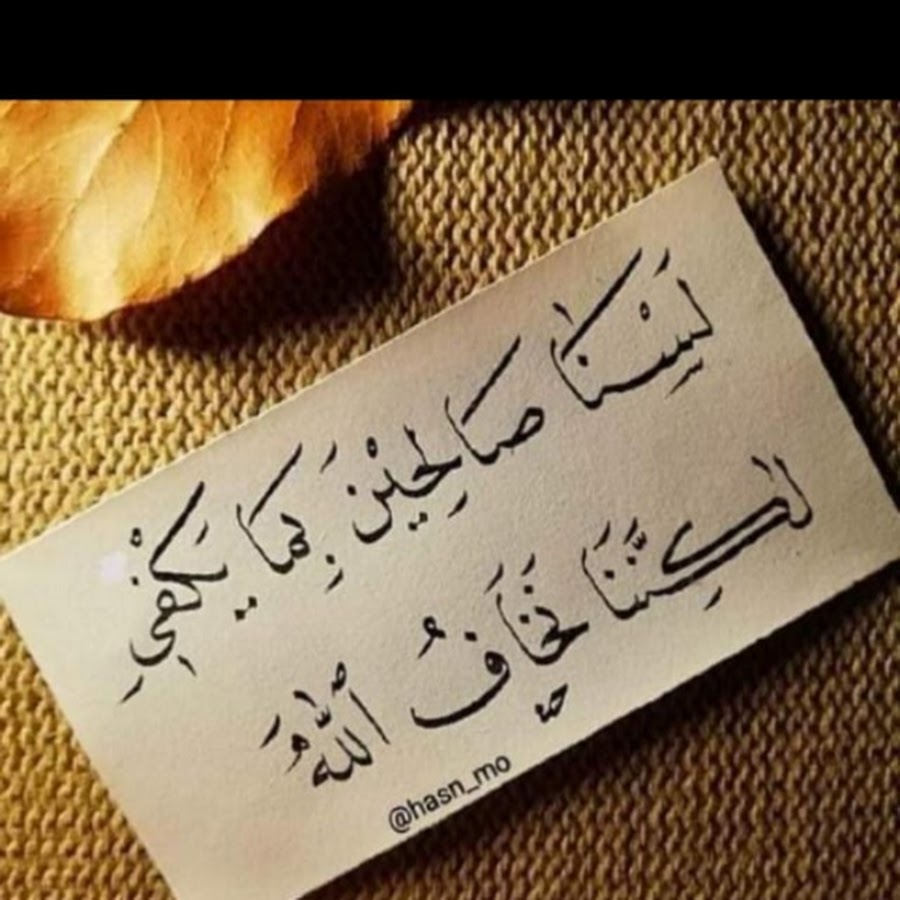 لَسْنَا صَالِحِيْنَ بِمَا يَكْفِي
لَكِنَّنَا نَخَافُ ٱللَّهَ
@hasn_mo